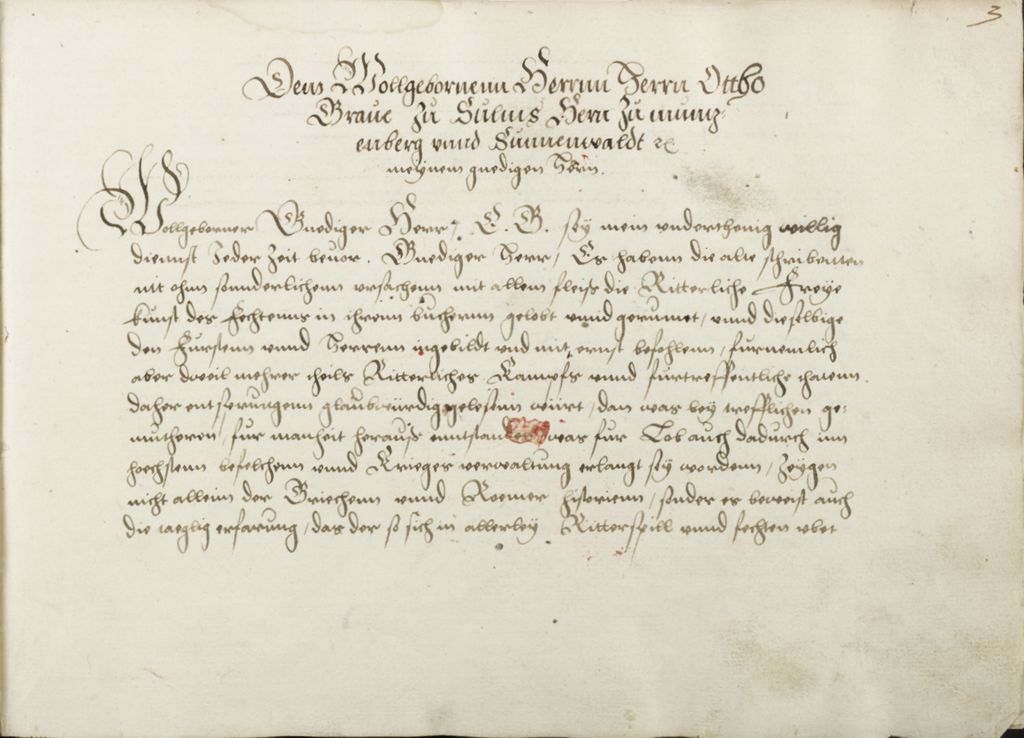 3
Dem Wollgebornenn Herrnn Herrn Ottho
Graue zu Sulms Hern zu muntz-
enberg vnnd Sunnenwaldt ꝛc
meynem gnedigen Hern.
Wollgeborner Gnediger Herr, E. G. sey mein vnderthenig willig
diennst Jeder Zeit beuor. Gnediger Herr, Es habenn die alte schribenten
nit ohn sonnderlichenn vrsachenn mit allem fleiss die Ritterliche Freye
kunst des Fechtenns in ihrenn buchernn gelobt vnnd gerumet, vnnd dieselbige
den Furstenn vnnd Herrenn ingebildt vnd mit ernst befohlenn, furnemlich
aber dweil mehrer theils Ritterliches Kampfs vnnd furtreffentliche thatenn
daher entsprungenn glaubwürdig gelesenn würt, dan was bey trefflichen ge-
mutheren, fur manheit herauss enntstanden was fur Lob auch dadurch inn
hoechstenn befelchenn vnnd Krieges verwaltung erlangt sey wordenn, zeygen
nicht allein der Griechenn vnnd Roemer historienn, sonder es beweist auch
die taeglig erfarung, das der so sich in allerley Ritterspill vnnd fechten vbet